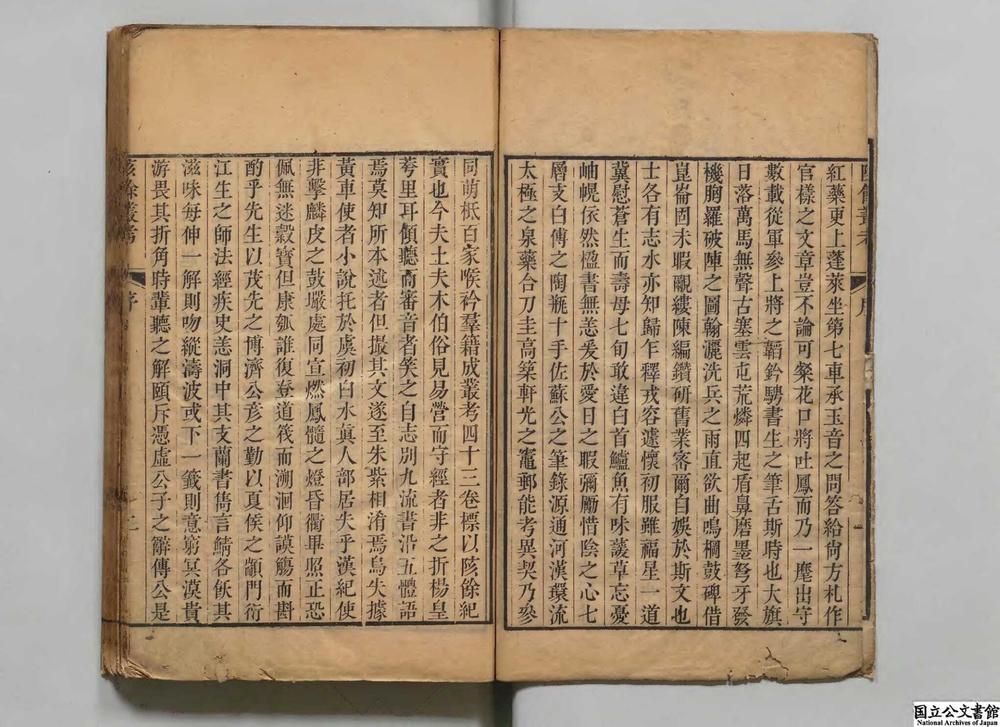 紅藥更上蓬萊坐第七車承玉音之問答給尙方札作
官樣之文章豈不論可粲花口將吐鳳而乃一麾出守
數載從軍參上將之韜鈐騁書生之筆舌斯時也大旗
日落萬馬無聲古塞雲屯荒燐四起盾鼻磨墨弩牙發
機胸羅破陣之圖翰灑洗兵之雨直欲曲鳴榈鼓碑借
崑崙固未暇覼縷陳編鑽硏舊業審爾自娛於斯文也
士各有志水亦知歸乍釋戎容遽懷初服雖福星一道
冀慰蒼生而壽母七旬敢違白首鱸魚有味護草忘憂
岫幌依然楹書無恙爰於愛日之暇彌勵惜陰之心七
層支白傅之陶瓶十手佐蘇公之筆錄源通河漢環流
太極之泉藥合刀圭高築軒光之竈郵能考異契乃參
同萌柢百家喉衿羣籍成叢考四十三卷標以陔餘紀
實也今夫土夫木伯俗見易營而守經者非之折楊皇
荂里耳傾聽而審音者笑之自志別九流書沿五體語
焉莫知所本述者但撮其文遂至朱紫相淆焉烏失據
黃車使者小說托於虞初白水眞人部居失乎漢紀使
非擊麟皮之鼓嚴處同宣燃鳳髓之燈昏衢畢照正恐
佩無迷穀寶但康瓠誰復登道筏而溯洄仰謨觴而斟
酌乎先生以茂先之博濟公彥之勤以夏侯之顓門衍
江生之師法經疾史恙洞中其支蘭書雋言鯖各飫其
滋味每伸一解則吻縱濤波或下一籤則意窮冥漠貴
游畏其折角時輩聽之解頤斥憑虛公子之辭傳公是
陔餘叢考
序
国立公文書館
National Archives of Japan